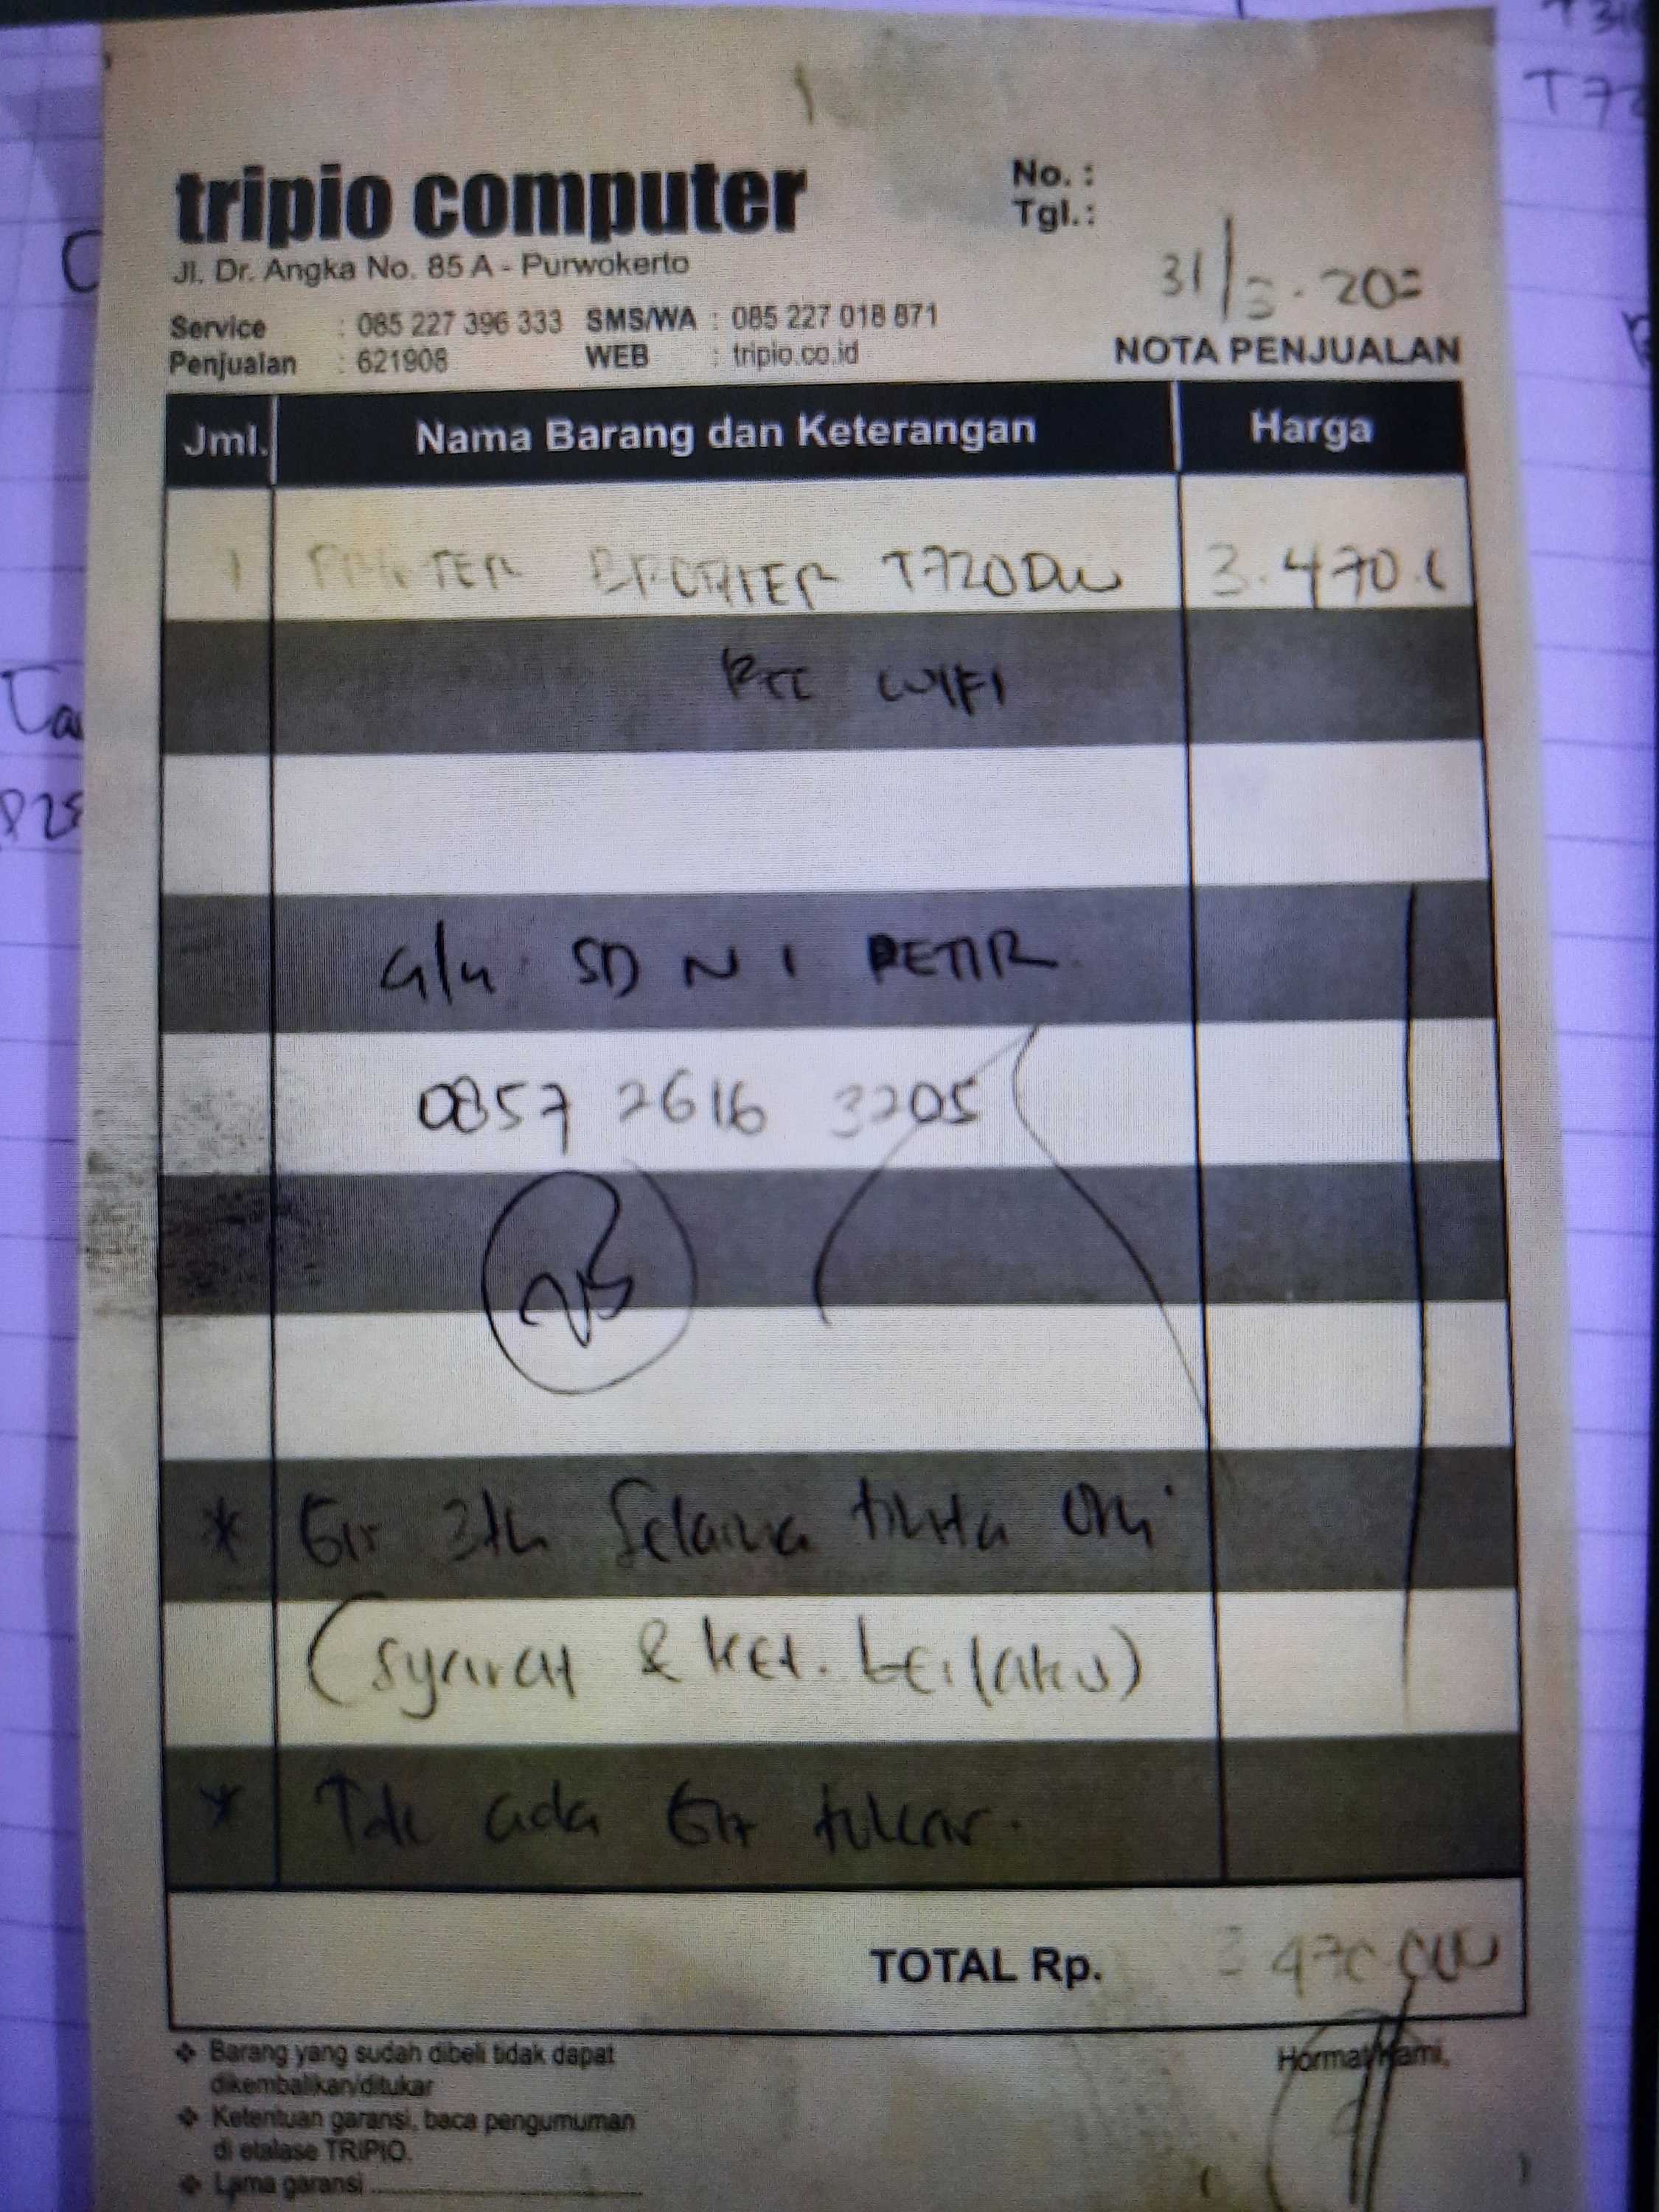 tripio computer
Jl. Dr. Angka No. 85 A - Purwokerto
No. :
Tgl.:
31/3.20
Service : 085 227 396 333 SMS/WA : 085 227 018 871
Penjualan : 621908 WEB : tripio.co.id
NOTA PENJUALAN
Jml. Nama Barang dan Keterangan Harga
1 PRINTER BROTHER T720DW 3.470.
WIFI
SD N 1 PETIR
0857 2616 3205
* Grr 3th Selama tinta Ori
(Syarat & ket. berlaku)
* Tdk ada Grr tukar.
TOTAL Rp. 3 470 000
Hormat Kami,
❖ Barang yang sudah dibeli tidak dapat
dikembalikan/ditukar
❖ Ketentuan garansi, baca pengumuman
di etalase TRIPIO.
❖ Lama garansi